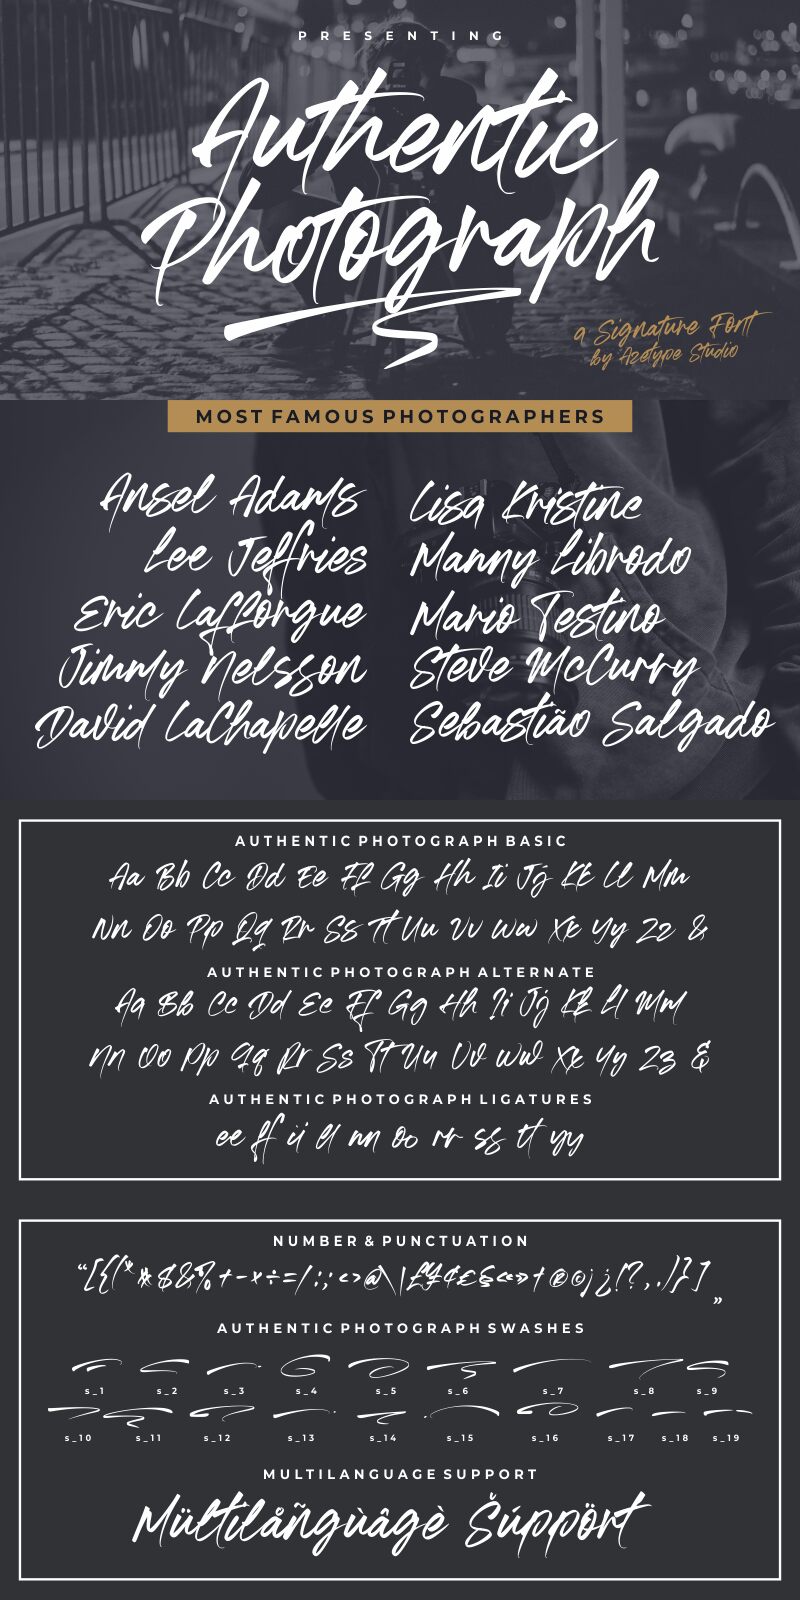 PRESENTING
Authentic
Photograph
a Signature Font
by Azetype Studio
MOST FAMOUS PHOTOGRAPHERS
Ansel Adams
Lee Jeffries
Eric Lafforgue
Jimmy Nelsson
David LaChapelle
Lisa Kristine
Manny Librodo
Mario Testino
Steve McCurry
Sebastião Salgado
AUTHENTIC PHOTOGRAPH BASIC
Aa Bb Cc Dd Ee Ff Gg Hh Ii Jj Kk Ll Mm
Nn Oo Pp Qq Rr Ss Tt Uu Vv Ww Xx Yy Zz &
AUTHENTIC PHOTOGRAPH ALTERNATE
Aa Bb Cc Dd Ee Ff Gg Hh Ii Jj Kk Ll Mm
Nn Oo Pp Qq Rr Ss Tt Uu Vv Ww Xx Yy Zz &
AUTHENTIC PHOTOGRAPH LIGATURES
ee ff ii ll nn oo rr ss tt yy
NUMBER & PUNCTUATION
“[{(**$&%+-×÷=/:;<>@\|£¥¢£§«»†®©¡¿!?,.)}]„
AUTHENTIC PHOTOGRAPH SWASHES
s_1 s_2 s_3 s_4 s_5 s_6 s_7 s_8 s_9
s_10 s_11 s_12 s_13 s_14 s_15 s_16 s_17 s_18 s_19
MULTILANGUAGE SUPPORT
Mültilåñgùâgè Šúppört